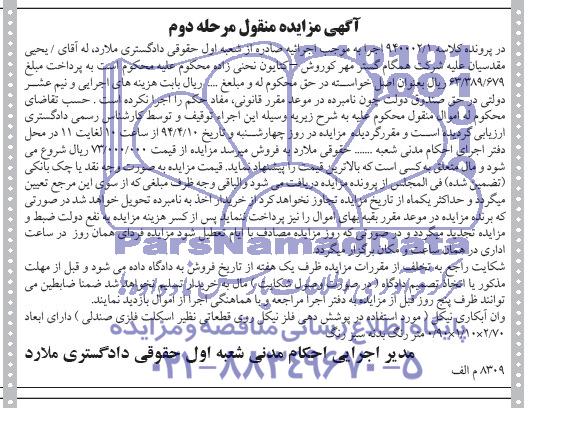 آگهی مزایده منقول مرحله دوم
در پرونده کلاسه ۹۴۰۰۰۲/۱ اجرا به موجب اجرائیه صادره از شعبه اول حقوقی دادگستری ملارد، له آقای / یحیی
مقدسیان علیه شرکت همگام گستر مهر کوروش - کتایون نحنی زاده محکوم علیه محکوم است به پرداخت مبلغ
۶۳/۳۸۹/۶۷۹ ریال بعنوان اصل خواسته در حق محکوم له و مبلغ .... ریال بابت هزینه های اجرایی و نیم عشر
دولتی در حق صندوق دولت چون نامبرده در موعد مقرر قانونی، مفاد حکم را اجرا نکرده است . حسب تقاضای
محکوم له اموال منقول محکوم علیه به شرح زیربه وسیله این اجراء توقیف و توسط کارشناس رسمی دادگستری
ارزیابی گردیده است و مقررگردیده مزایده در روز چهارشنبه و تاریخ ۹۴/۴/۱۰ از ساعت ۱۰ لغایت ۱۱ در محل
دفتر اجرای احکام مدنی شعبه ....... حقوقی ملارد به فروش میرسد مزایده از قیمت ۷۳/۰۰۰/۰۰۰ ریال شروع می
شود و مال متعلق به کسی است که بالاترین قیمت را پیشنهاد نماید. قیمت مزایده به صورت وجه نقد یا چک بانکی
(تضمین شده) فی المجلس از برنده مزایده دریافت می شود و الباقی وجه ظرف مبلغی که از سوی این مرجع تعیین
میگردد و حداکثر یکماه از تاریخ مزایده تجاوز نخواهد کرد از خریدار اخذ به نامبرده تحویل خواهد شد در صورتی
که برنده مزایده در موعد مقرر بقیه بهای اموال را نیز پرداخت ننماید پس از کسر هزینه مزایده به نفع دولت ضبط و
مزایده تجدید میگردد و در صورتی که روز مزایده مصادف با ایام تعطیل شود مزایده فردای همان روز در ساعت
اداری در همان ساعت و مکان برگزار میگردد.
شکایت راجع به تخلف از مقررات مزایده ظرف یک هفته از تاریخ فروش به دادگاه داده می شود و قبل از مهلت
مذکور یا اتخاذ تصمیم دادگاه (در صورت وصول شکایت) مال به خریدار تسلیم نخواهد شد ضمنا ضابطین می
توانند ظرف پنج روز قبل از مزایده به دفتر اجرا مراجعه و با هماهنگی اجرا از اموال بازدید نمایند.
وان آبکاری نیکل ( مورد استفاده در پوشش دهی فلز نیکل روی قطعاتی نظیر اسکلت فلزی صندلی ) دارای ابعاد
۲/۷۰×۱/۱۰×۰/۹۰ متر رنگ بدنه سبز رنگ
مدیر اجرایی احکام مدنی شعبه اول حقوقی دادگستری ملارد
۸۳۰۹ م الف
ParsNamadData
پایگاه اطلاع رسانی مناقصه و مزایده
۰۲۱-۸۸۳۴۹۶۷۰-۵